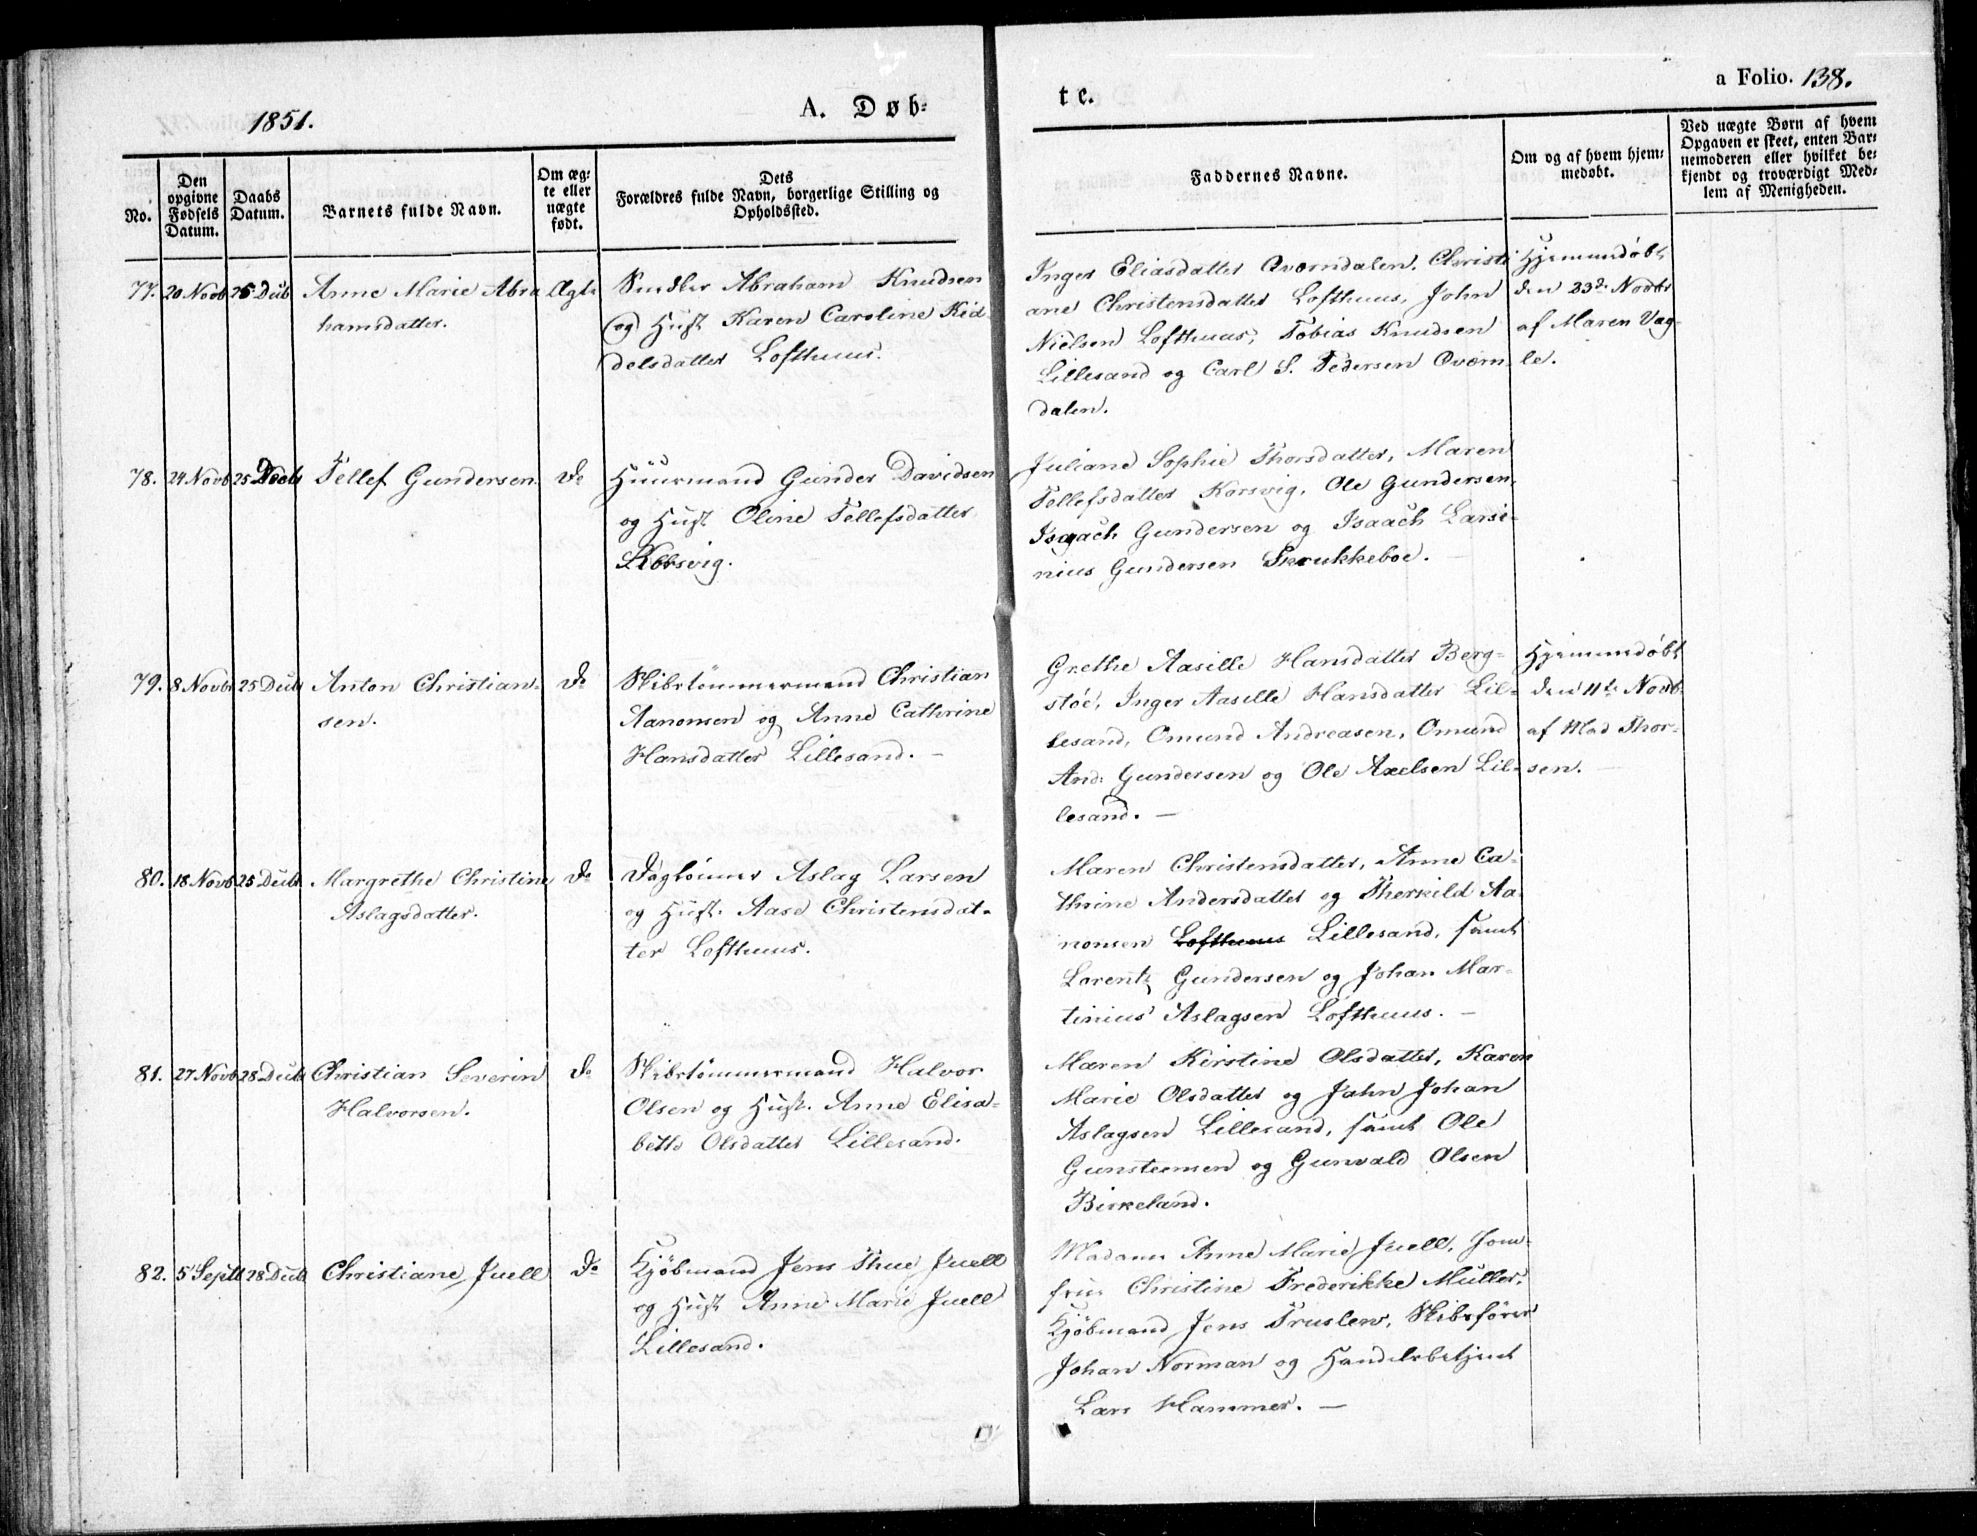 1851.
A. Døb-
te.
a Folio. 138.
No.
Den opgivne Fødsels Datum.
Daabs Datum.
Barnets fulde Navn.
Om ægte eller uægte født.
Dets
Forældres fulde Navn, borgerlige Stilling og
Opholdssted.
Faddernes Navne.
Om og af hvem hjem-
medøbt.
Ved uægte Børn af hvem
Opgaven er skeet, enten Bar-
nemoderen eller hvilket be-
kjendt og troværdigt Med-
lem af Menigheden.
77. 20 Novb 25 Decb Anne Marie Abra
hamsdatter.
Ægte
Snedker Abraham Knudsen
og Hust Karen Caroline Kid-
delsdatter Lofthuus.
Inger Eliasdatter Qværndalen, Christi
ane Christensdatter Lofthuus, John
Nielsen Lofthuus, Tobias Knudsen
Lillesand og Carl S. Pedersen Qværn-
dalen.
Hjemmedøbt
den 23de Novbr
af Maren Vag-
le.
78. 24 Novb 25 Decb Tellef Gundersen.
Do
Huusmand Gunder Davidsen
og Hust Oline Tellefsdatter
Korsvig.
Juliane Sophie Thorsdatter, Maren
Tellefsdatter Korsvig, Ole Gundersen,
Isaach Gundersen og Isaach Larsi-
nius Gundersen Skrukkeboe.
79. 8 Novbr 25 Decb Anton Christian-
sen.
Do
Skibstømmermand Christian
Aanonsen og Anne Cathrine
Hansdatter Lillesand. —
Grethe Aasille Hansdatter Berg-
støe, Inger Aasille Hansdatter Lil-
lesand, Omund Andreasen, Omund
And: Gundersen og Ole Axelsen Lil-
lesand. —
Hjemmedøbt
den 11te Novb.
af Mad Thor-
sen.
80. 18 Novb 25 Decb Margrethe Christine
Aslagsdatter.
Do
Dagleiner Aslag Larsen
og Hust. Aase Christensdat-
ter Lofthuus.
Maren Christensdatter, Anne Ca-
thrine Andersdatter og Therkild Aa-
nonsen Lofthuus Lillesand, samt
Lorentz Gundersen og Johan Mar-
tinius Aslagsen Lofthuus. —
81. 27 Novb 28 Decb Christian Severin
Halvorsen.
Do
Skibstømmermand Halvor
Olsen og Hust. Anne Elisa-
beth Olsdatter Lillesand.
Maren Kirstine Olsdatter, Karen
Marie Olsdatter og John Johan
Aslagsen Lillesand, samt Ole
Gunsteensen og Gunvald Olsen
Birkeland.
82. 5 Septb 28 Decb Christiane Juell
Do
Kjøbmand Jens Thue Juell
og Hust Anne Marie Juell
Lillesand.
Madam Anne Marie Juell, Jom-
fru Christine Frederikke Müller,
Kjøbmand Jens Truslew, Skibsfører
Johan Norman og Handelsbetjent
Lars Hammer. —